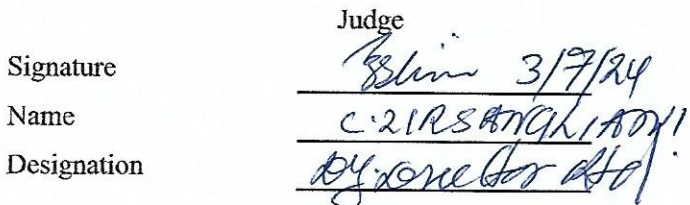 Judge
Signature 3/7/24
Name C. ZIRSANGLIANI
Designation Dy. Director